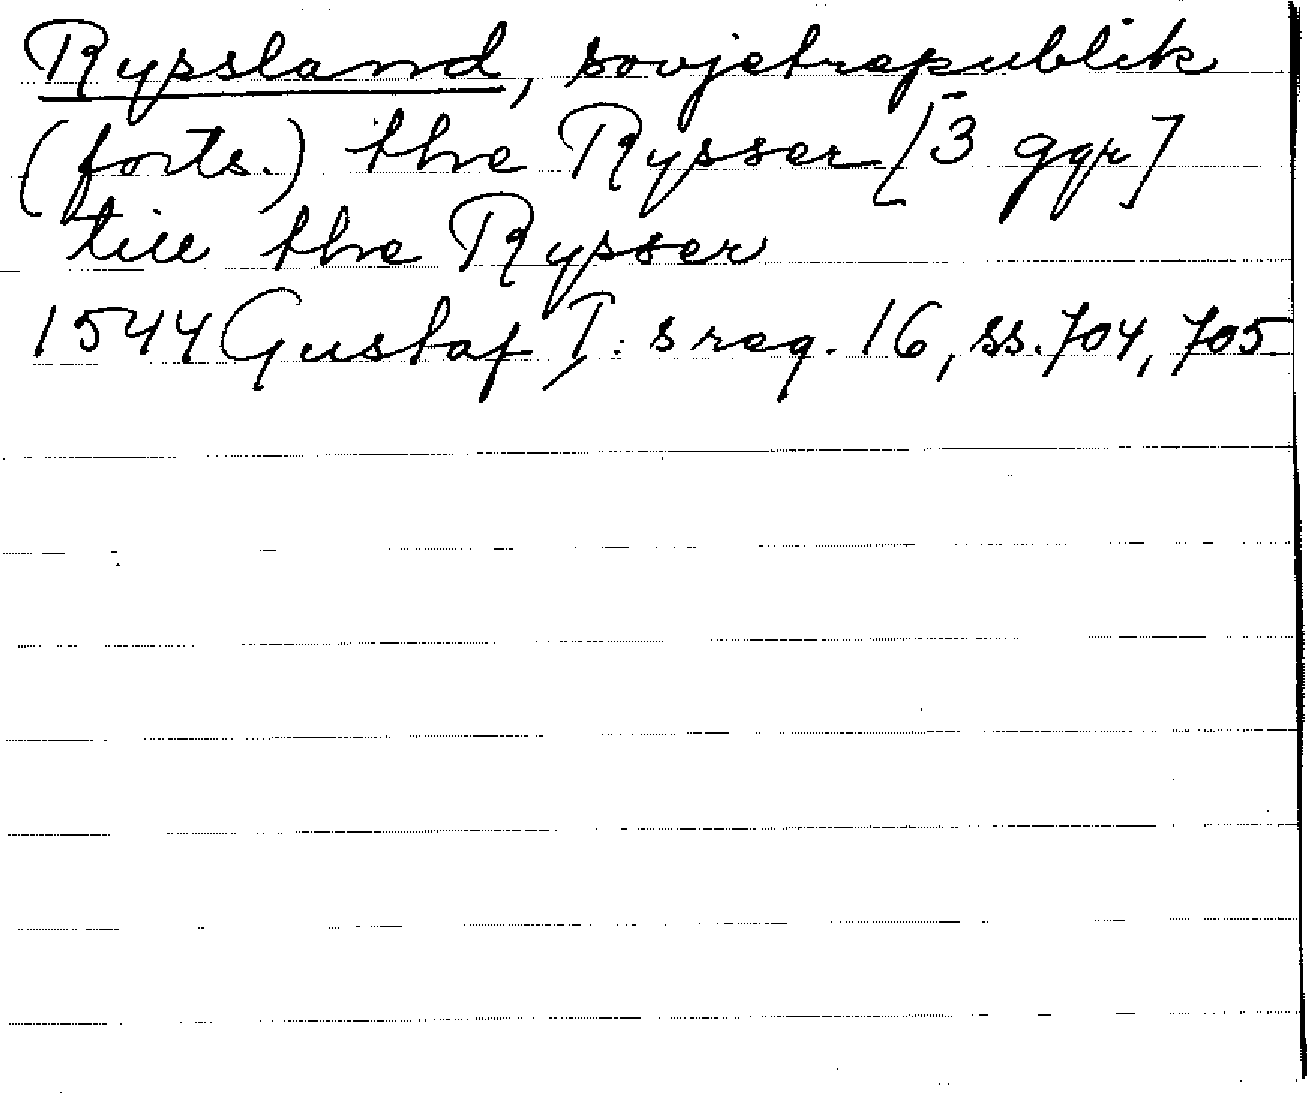 Ryssland, sovjetrepublik
(forts.) the Rysser [3 ggr]
till the Rysser
1544 Gustaf I: s reg. 16, ss. 704, 705.